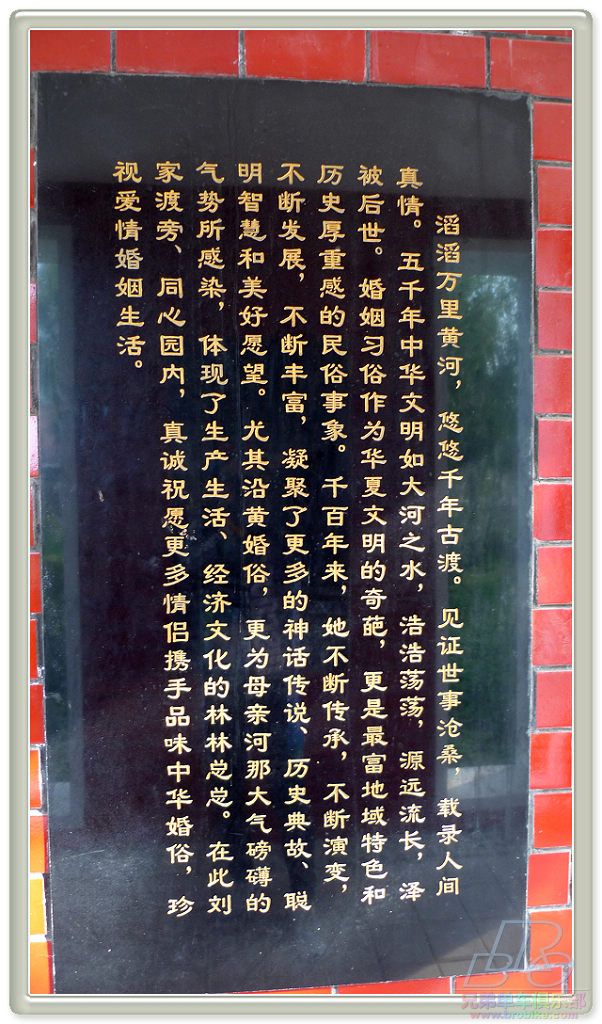 滔滔万里黄河，悠悠千年古渡。见证世事沧桑，载录人间
真情。五千年中华文明如大河之水，浩浩荡荡，源远流长，泽
被后世。婚姻习俗作为华夏文明的奇葩，更是最富地域特色和
历史厚重感的民俗事象。千百年来，她不断传承，不断演变，
不断发展，不断丰富，凝聚了更多的神话传说、历史典故、聪
明智慧和美好愿望。尤其沿黄婚俗，更为母亲河那大气磅礴的
气势所感染，体现了生产生活、经济文化的林林总总。在此刘
家渡旁、同心园内，真诚祝愿更多情侣携手品味中华婚俗，珍
视爱情婚姻生活。
BRO
兄弟单车俱乐部
www.brobike.com